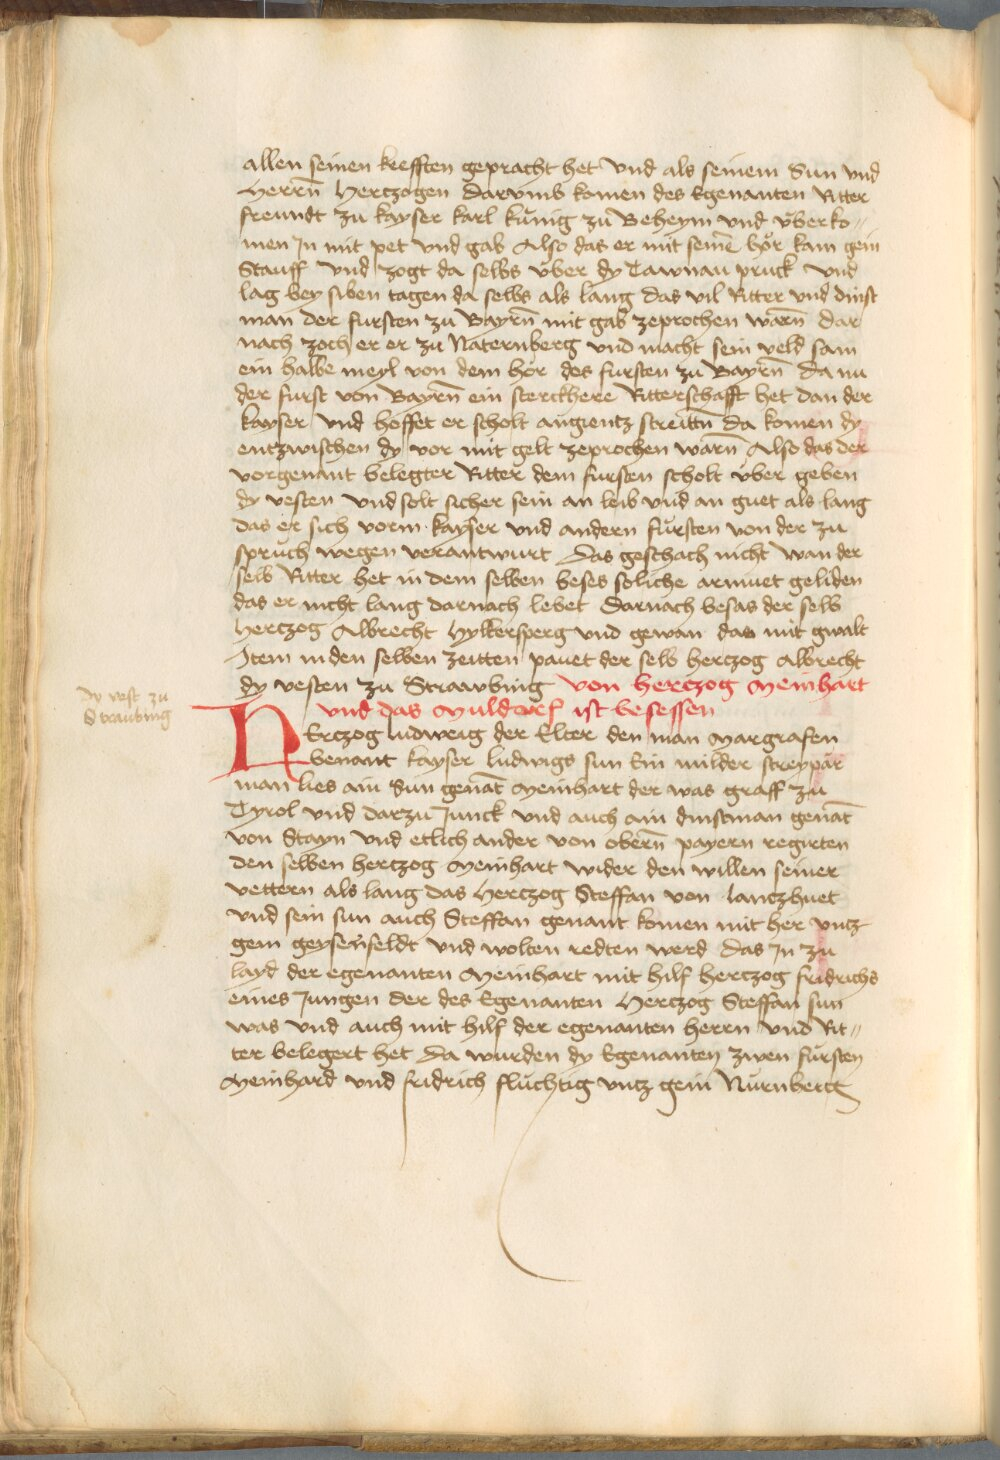 allen seinen krefften gepracht het Vnd als seinem Sun vnd
Herrn̄ Hertzogen Darvmb komen des Egenanten Ritter
freundt zu kayser karl kunig zu Beheym vnd vberko //
men Jn mit pet vnd gab Also das er mit seinē hör kam gein
Stauff Vnd zogt da selbs vber dy Tawnau pruck Vnd
lag bey siben tagen da selbs als lang das vil Ritter vnd dinst
man der fursten zu Bayrn̄ mit gab zeprochen warn̄ Dar
nach zoch er er zu Naternberg vnd macht sein veld sam
ein halbe meyl von dem hör des fursten zu Bayrn̄ Da nu
der furst von Bayrn̄ ein sterckhere Ritterschafft het dan der
kayser Vnd hoffet er scholt angientz streittn̄ Da komen dy
entzwischen dy vor mit gelt zeprochen warn̄ Also das der
vorgenant belegter Ritter dem fursten scholt vber geben
dy vesten Vnd solt sicher sein an leib vnd an guet als lang
das er sich vorm kayser vnd andern fursten von der zu
spruch wegen verantwurt Das geschach nicht wan der
selb Ritter het in dem selben beses soliche armuet geliden
das er nicht lang darnach lebet Darnach besas der selb
Hertzog Albrecht Hylkersperg vnd gewan das mit gwalt
Jtem in den selben zeitten pauet der selb hertzog Albrecht
dy vesten zu Straubing Von hertzog Meinhart
dy vest zu
Straubing
vnd das Muldorf ist besessen
HErtzog Ludweig der Elter den man Margrafen
benant kayser ludwigs sun Ein milder streypar
man lies ain Sun genāt Meinhart der was graff zu
Tyrol vnd darzu Junck vnd auch ain dinstman genāt
von Stayn vnd etlich ander von obern̄ payern regirten
den selben hertzog Meinhart wider den willen seiner
vettern als lang das Hertzog Steffan von lantzhuet
vnd sein sun auch Steffan genant komen mit her vntz
gein geysenfeldt vnd wolten redten werd das Jn zu
layd der egenanten Meinhart mit hilf hertzog fridrichs
eines Jungen der des Egenanten Hertzog Steffan sun
was vnd auch mit hilf der egenanten herrn vnd Rit //
ter belegert het Da wurden dy Egenanten zwen fursten
Meinhard vnd fridrich fluchtig vntz gein Nurnberg